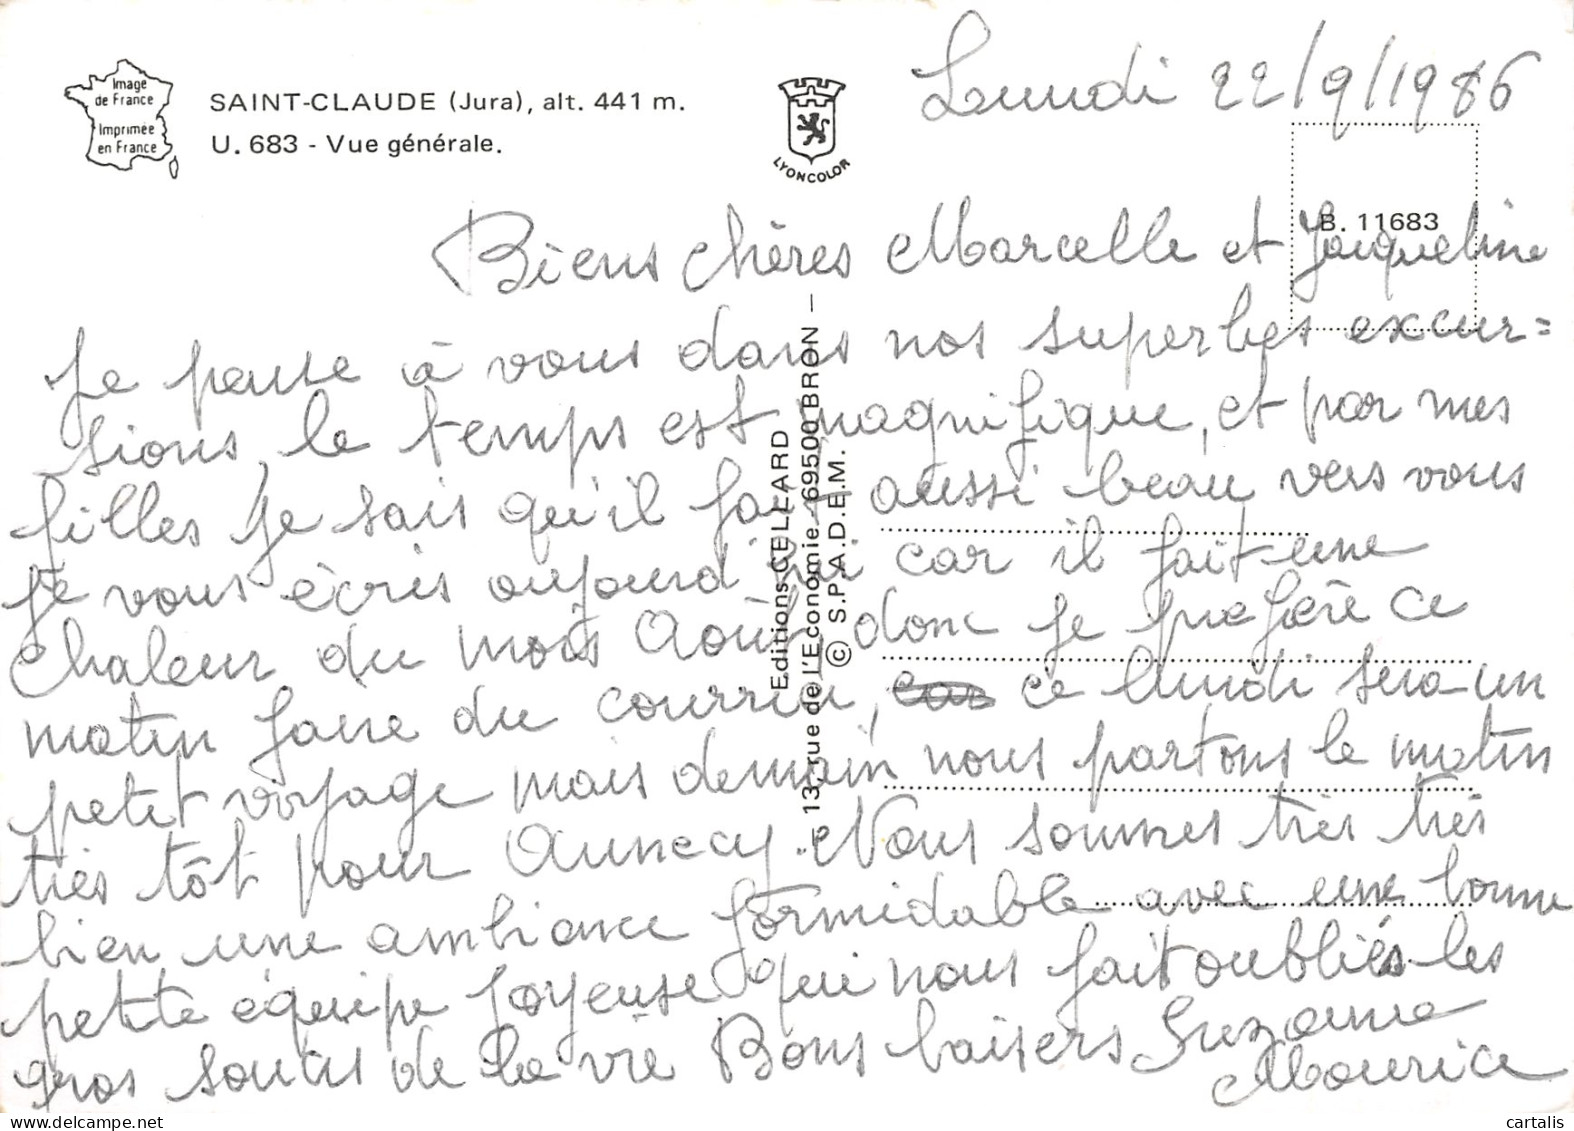 Image
de France
Imprimée
en France
SAINT-CLAUDE (Jura), alt. 441 m.
U. 683 - Vue générale.
LYONCOLOR
B. 11683
Editions CELLARD
— 13, rue de l'Economie - 69500 BRON —
© S.P.A.D.E.M.
Lundi 22/9/1986
Biens chères Marcelle et Jacqueline
Je pense à vous dans nos superbes excur=
sions, le temps est magnifique, et par mes
filles je sais qu'il fait aussi beau vers vous
je vous écris aujourd'hui car il fait une
chaleur du mois Août, donc je préfère ce
matin faire du courrier, car ce lundi sera un
petit voyage mais demain nous partons le matin
très tôt pour Annecy. Nous sommes très très
bien une ambiance formidable avec une bonne
petite équipe joyeuse qui nous fait oubliés les
gros soucis de la vie Bons baisers Suzanne
Maurice
cartalis